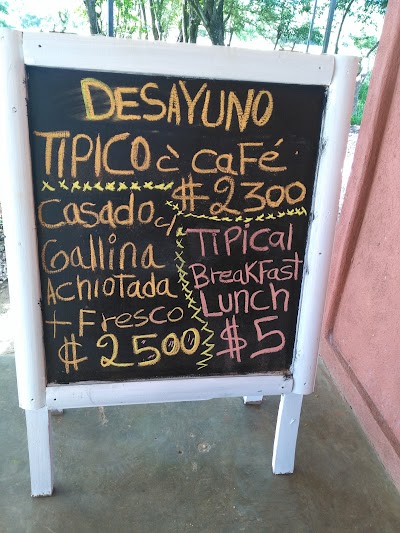 DESAYUNO
TIPICO c̀ café
₡ 2300
Casado c/
Gallina
Achiotada
+ Fresco
₡ 2500
TIPICAL
BREAKFAST
LUNCH
$5